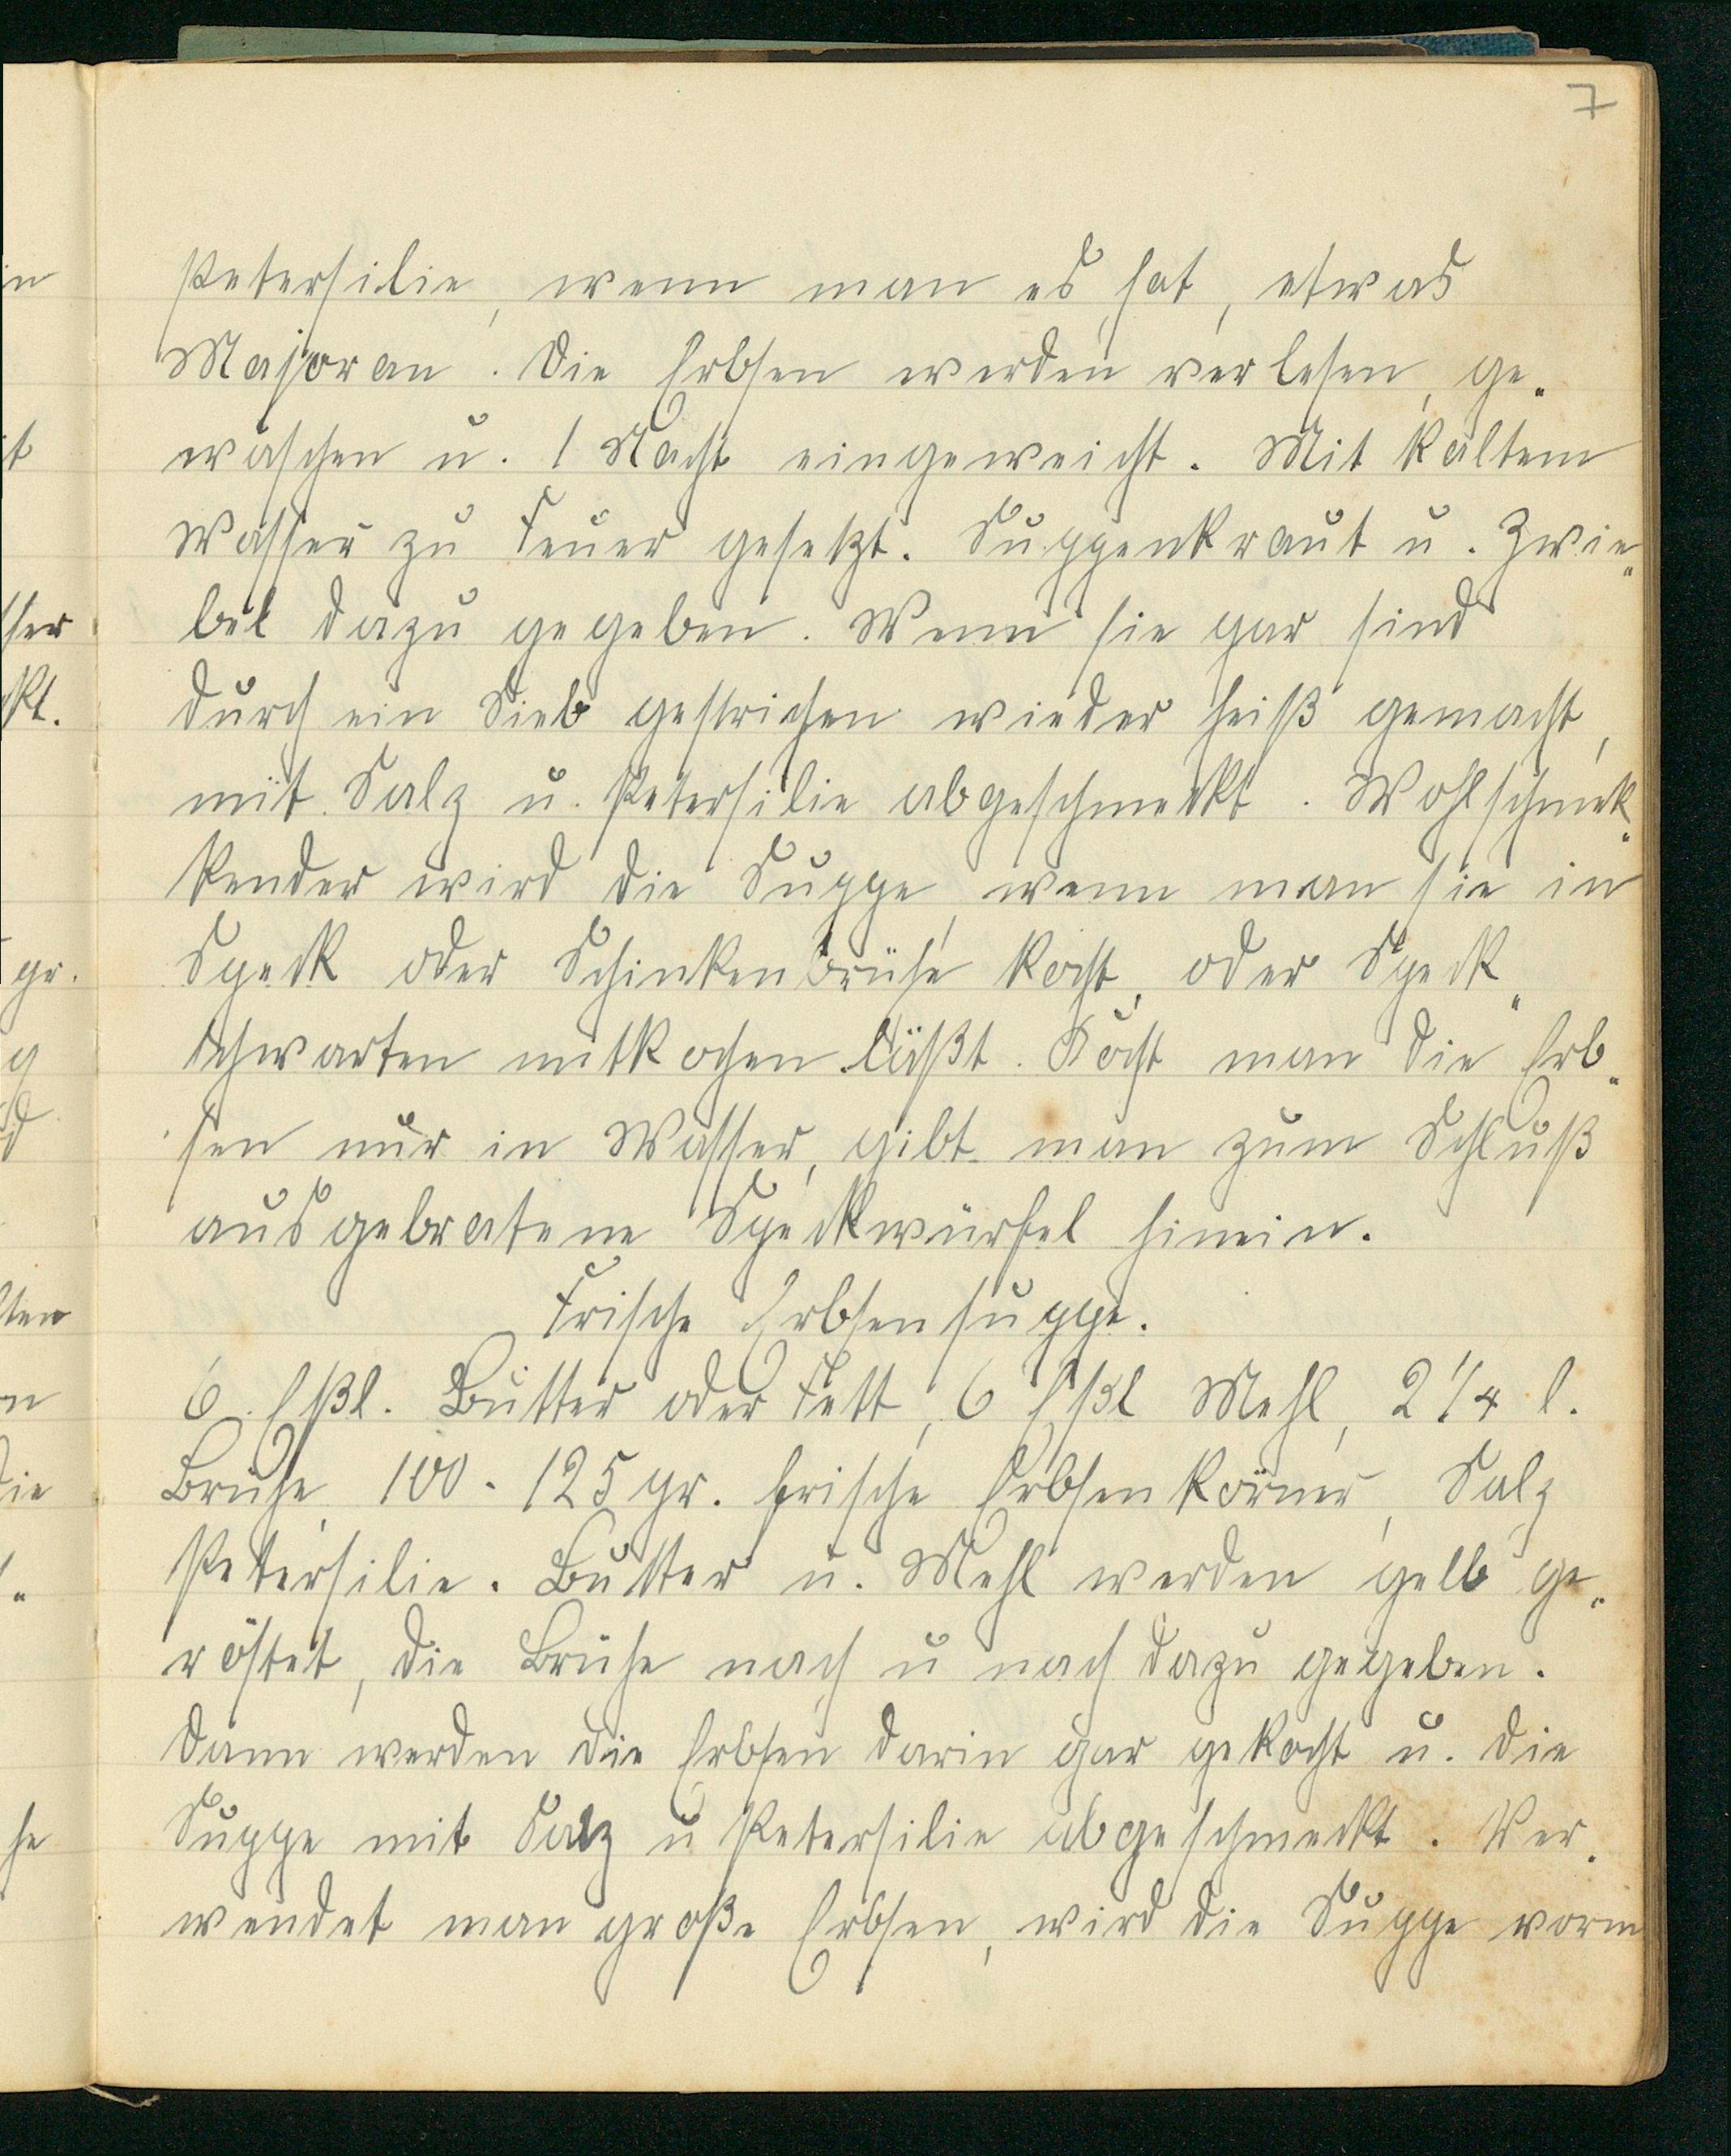 7
Petersilie, wenn man es hat, etwas
Majoran. Die Erbsen werden verlesen, ge-
waschen u. 1 Nacht eingeweicht. Mit kaltem
Wasser zu Feuer gesetzt. Suppenkraut u. Zwie-
bel dazu gegeben. Wenn sie gar sind
durch ein Sieb gestrichen wieder heiß gemacht,
mit Salz u. Petersilie abgeschmeckt. Wohlschmek-
kender wird die Suppe, wenn man sie in
Speck oder Schinkenbrühe kocht, oder Speck-
schwarten mitkochen läßt. Kocht man die Erb-
sen nur in Wasser, gibt man zum Schluß
ausgebratene Speckwürfel hinein.
Frische Erbsensuppe.
6 Eßl. Butter oder Fett, 6 Eßl Mehl, 2 1/4 l.
Brühe, 100 - 125 gr. frische Erbsenkörner, Salz
Petersilie. Butter u. Mehl werden gelb ge-
röstet, die Brühe nach u nach dazu gegeben.
Dann werden die Erbsen darin gar gekocht u. die
Suppe mit Salz u Petersilie abgeschmeckt. Ver-
wendet man große Erbsen, wird die Suppe vorm